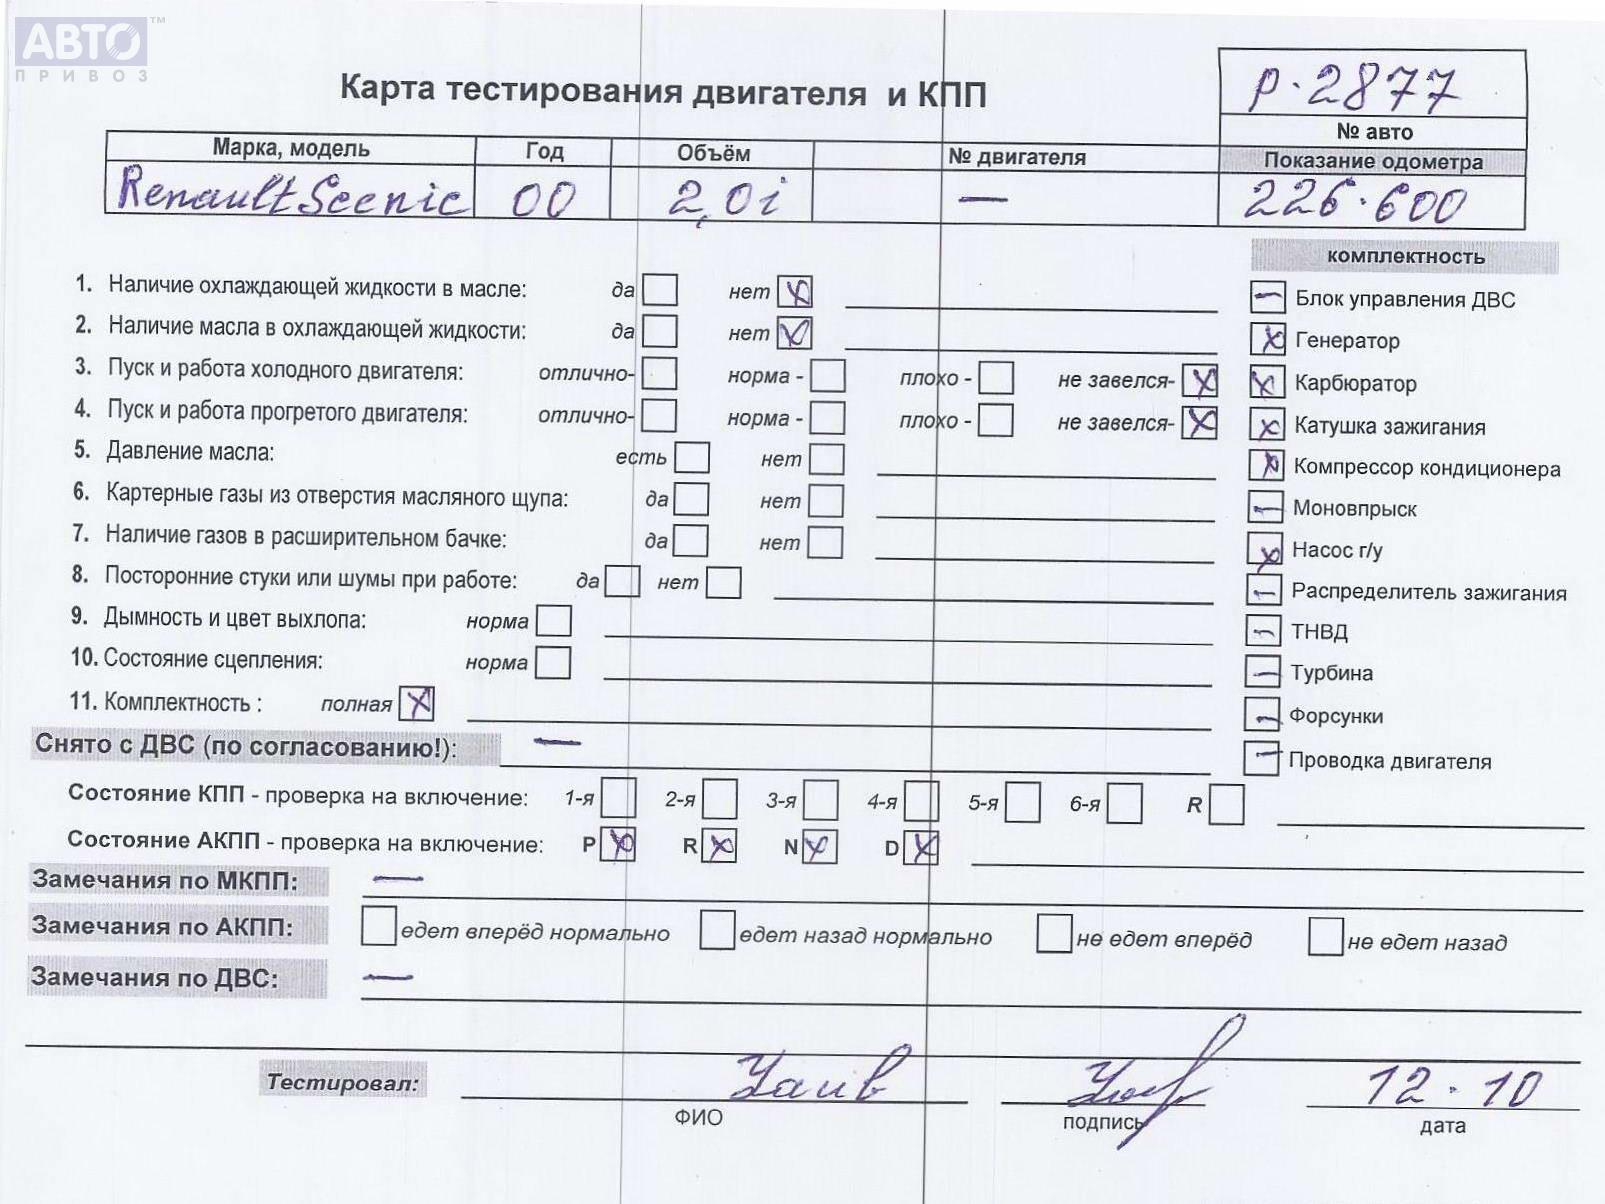 АВТО™
ПРИВОЗ
Карта тестирования двигателя и КПП
р·2877
№ авто
Марка, модель Год Объём № двигателя Показание одометра
Renault Scenic 00 2,0i — 226·600
комплектность
1. Наличие охлаждающей жидкости в масле: да нет X
Блок управления ДВС
2. Наличие масла в охлаждающей жидкости: да нет X
Генератор X
3. Пуск и работа холодного двигателя: отлично- норма - плохо - не завелся- X
Карбюратор X
4. Пуск и работа прогретого двигателя: отлично- норма - плохо - не завелся- X
Катушка зажигания X
5. Давление масла: есть нет
Компрессор кондиционера X
6. Картерные газы из отверстия масляного щупа: да нет
Моновпрыск
7. Наличие газов в расширительном бачке: да нет
Насос г/у X
8. Посторонние стуки или шумы при работе: да нет
Распределитель зажигания
9. Дымность и цвет выхлопа: норма
ТНВД
10. Состояние сцепления: норма
Турбина
11. Комплектность : полная X
Форсунки
Снято с ДВС (по согласованию!): —
Проводка двигателя
Состояние КПП - проверка на включение: 1-я 2-я 3-я 4-я 5-я 6-я R
Состояние АКПП - проверка на включение: P X R X N X D X
Замечания по МКПП: —
Замечания по АКПП: едет вперёд нормально едет назад нормально не едет вперёд не едет назад
Замечания по ДВС: —
Тестировал: 12·10
ФИО подпись дата